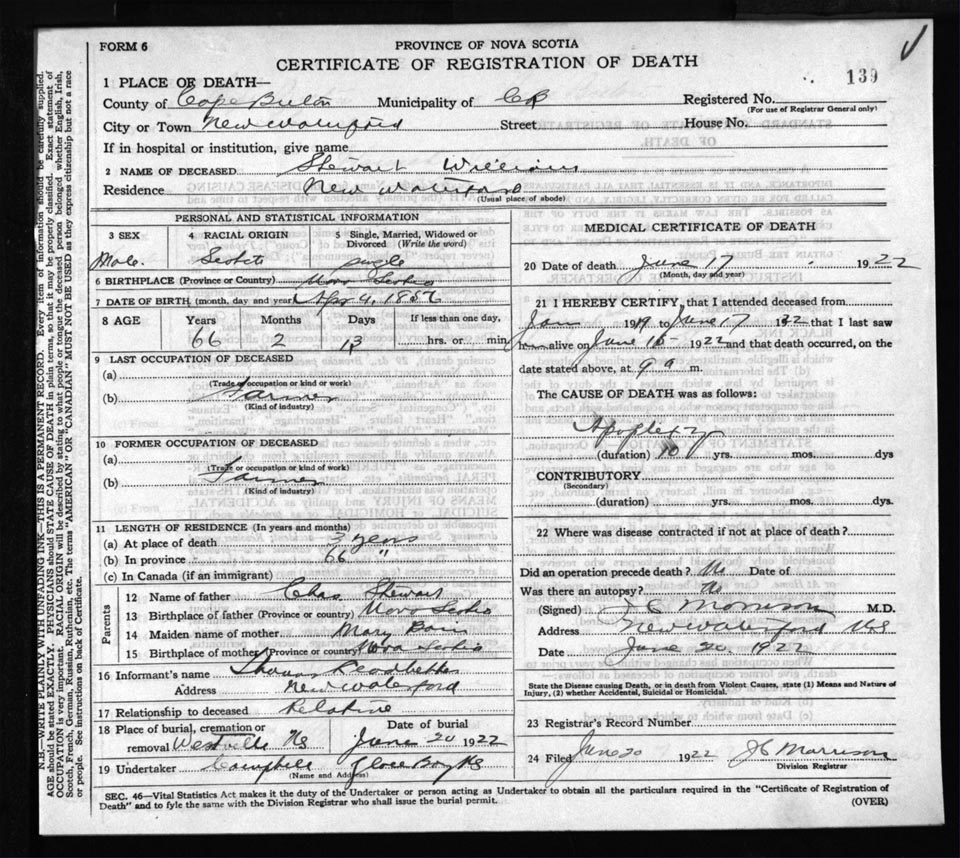 FORM 6
PROVINCE OF NOVA SCOTIA
CERTIFICATE OF REGISTRATION OF DEATH
139
1 PLACE OF DEATH—
County of Cape Breton Municipality of CB Registered No.
(For use of Registrar General only)
City or Town New Waterford Street House No.
If in hospital or institution, give name
2 NAME OF DECEASED Stewart William
Residence New Waterford
(Usual place of abode)
PERSONAL AND STATISTICAL INFORMATION
3 SEX 4 RACIAL ORIGIN 5 Single, Married, Widowed or Divorced (Write the word)
Male Scotch single
6 BIRTHPLACE (Province or Country) Nova Scotia
7 DATE OF BIRTH (month, day and year) Apr 4, 1856
8 AGE Years Months Days If less than one day,
66 2 13 hrs. or min.
9 LAST OCCUPATION OF DECEASED
(a)
(Trade or occupation or kind or work)
(b) Farmer
(Kind of industry)
10 FORMER OCCUPATION OF DECEASED
(a)
(Trade or occupation or kind or work)
(b) Farmer
(Kind of industry)
11 LENGTH OF RESIDENCE (In years and months)
(a) At place of death 3 years
(b) In province 66 "
(c) In Canada (if an immigrant)
Parents
12 Name of father Chas. Stewart
13 Birthplace of father (Province or country) Nova Scotia
14 Maiden name of mother Mary
15 Birthplace of mother (Province or country) Nova Scotia
16 Informant's name Thomas Leadbetter
Address New Waterford
17 Relationship to deceased Relative
18 Place of burial, cremation or removal Westville NS Date of burial June 20 1922
19 Undertaker Campbell Glace Bay NS
(Name and Address)
MEDICAL CERTIFICATE OF DEATH
20 Date of death June 17 1922
(Month, day and year)
21 I HEREBY CERTIFY, that I attended deceased from
Jan 1919 to June 17 1922 that I last saw
h alive on June 15 1922 and that death occurred, on the
date stated above, at 9 a m.
The CAUSE OF DEATH was as follows:
Apoplexy
(duration) 10 yrs. mos. dys
CONTRIBUTORY
(Secondary)
(duration) yrs. mos. dys.
22 Where was disease contracted if not at place of death?
Did an operation precede death? No Date of
Was there an autopsy? No
(Signed) J C Morrison M.D.
Address New Waterford NS
Date June 20, 1922
State the Disease causing Death, or in death from Violent Causes, state (1) Means and Nature of
Injury, (2) whether Accidental, Suicidal or Homicidal.
23 Registrar's Record Number
24 Filed June 20 1922 J C Morrison
Division Registrar
SEC. 46—Vital Statistics Act makes it the duty of the Undertaker or person acting as Undertaker to obtain all the particulars required in the "Certificate of Registration of
Death" and to fyle the same with the Division Registrar who shall issue the burial permit. (OVER)
N.B.—WRITE PLAINLY WITH UNFADING INK—THIS IS A PERMANENT RECORD. Every item of information should be carefully supplied.
AGE should be stated EXACTLY. PHYSICIANS should STATE CAUSE OF DEATH in plain terms, so that it may be properly classified. Exact statement of
OCCUPATION is very important. RACIAL ORIGIN will be described by stating to what people or tongue the deceased person belonged, whether English, Irish,
Scotch, French, German, Russian, Ruthenian, etc. The terms "AMERICAN" OR "CANADIAN" MUST NOT BE USED as they express citizenship but not a race
or people. See instructions on back of Certificate.